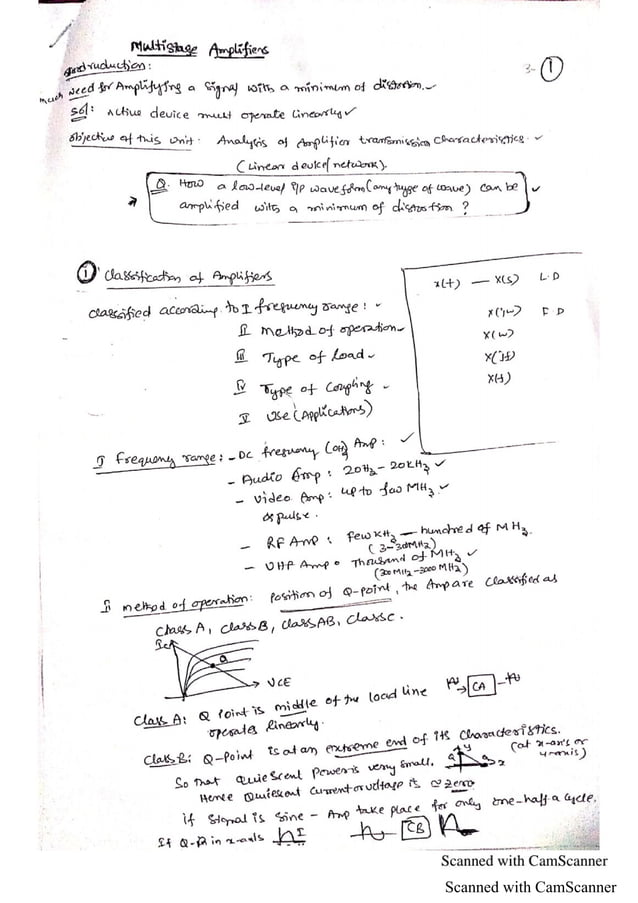 Multistage Amplifiers
Introduction:
3- 1
much need for Amplifying a signal with a minimum of distortion.
Sol: Active device must operate linearly
Objective of this unit: Analysis of Amplifier transmission characteristics.
(Linear device/network).
Q. How a low-level I/P waveform (any type of wave) can be
amplified with a minimum of distortion?
1 Classification of Amplifiers
classified according to I frequency range:
II method of operation
III Type of Load
IV Type of Coupling
V Use (Applications)
x(t) — X(s) L.D
X(jω) F D
X(ω)
X(jf)
X(f)
I frequency range: - DC frequency (0Hz) Amp:
- Audio Amp: 20Hz - 20KHz
- Video Amp: up to few MHz
or pulse.
- RF Amp: Few KHz — hundred of MHz.
(3-300MHz)
- UHF Amp: Thousand of MHz
(300MHz-3000MHz)
II method of operation: position of Q-point, the Amp are classified as
Class A, Class B, Class AB, Class C.
Ic
Q
VCE
Class A: Q Point is middle of the load line
CA
operates linearly.
Class B: Q-Point is at an extreme end of its characteristics.
(at x-axis or
y-axis)
So that Quiescent Power is very small.
Q y Q x
Hence Quiescent current or voltage is ≈ zero
if signal is sine - Amp take place for only one-half a cycle.
If Q-pt in x-axis
CB
Scanned with CamScanner
Scanned with CamScanner